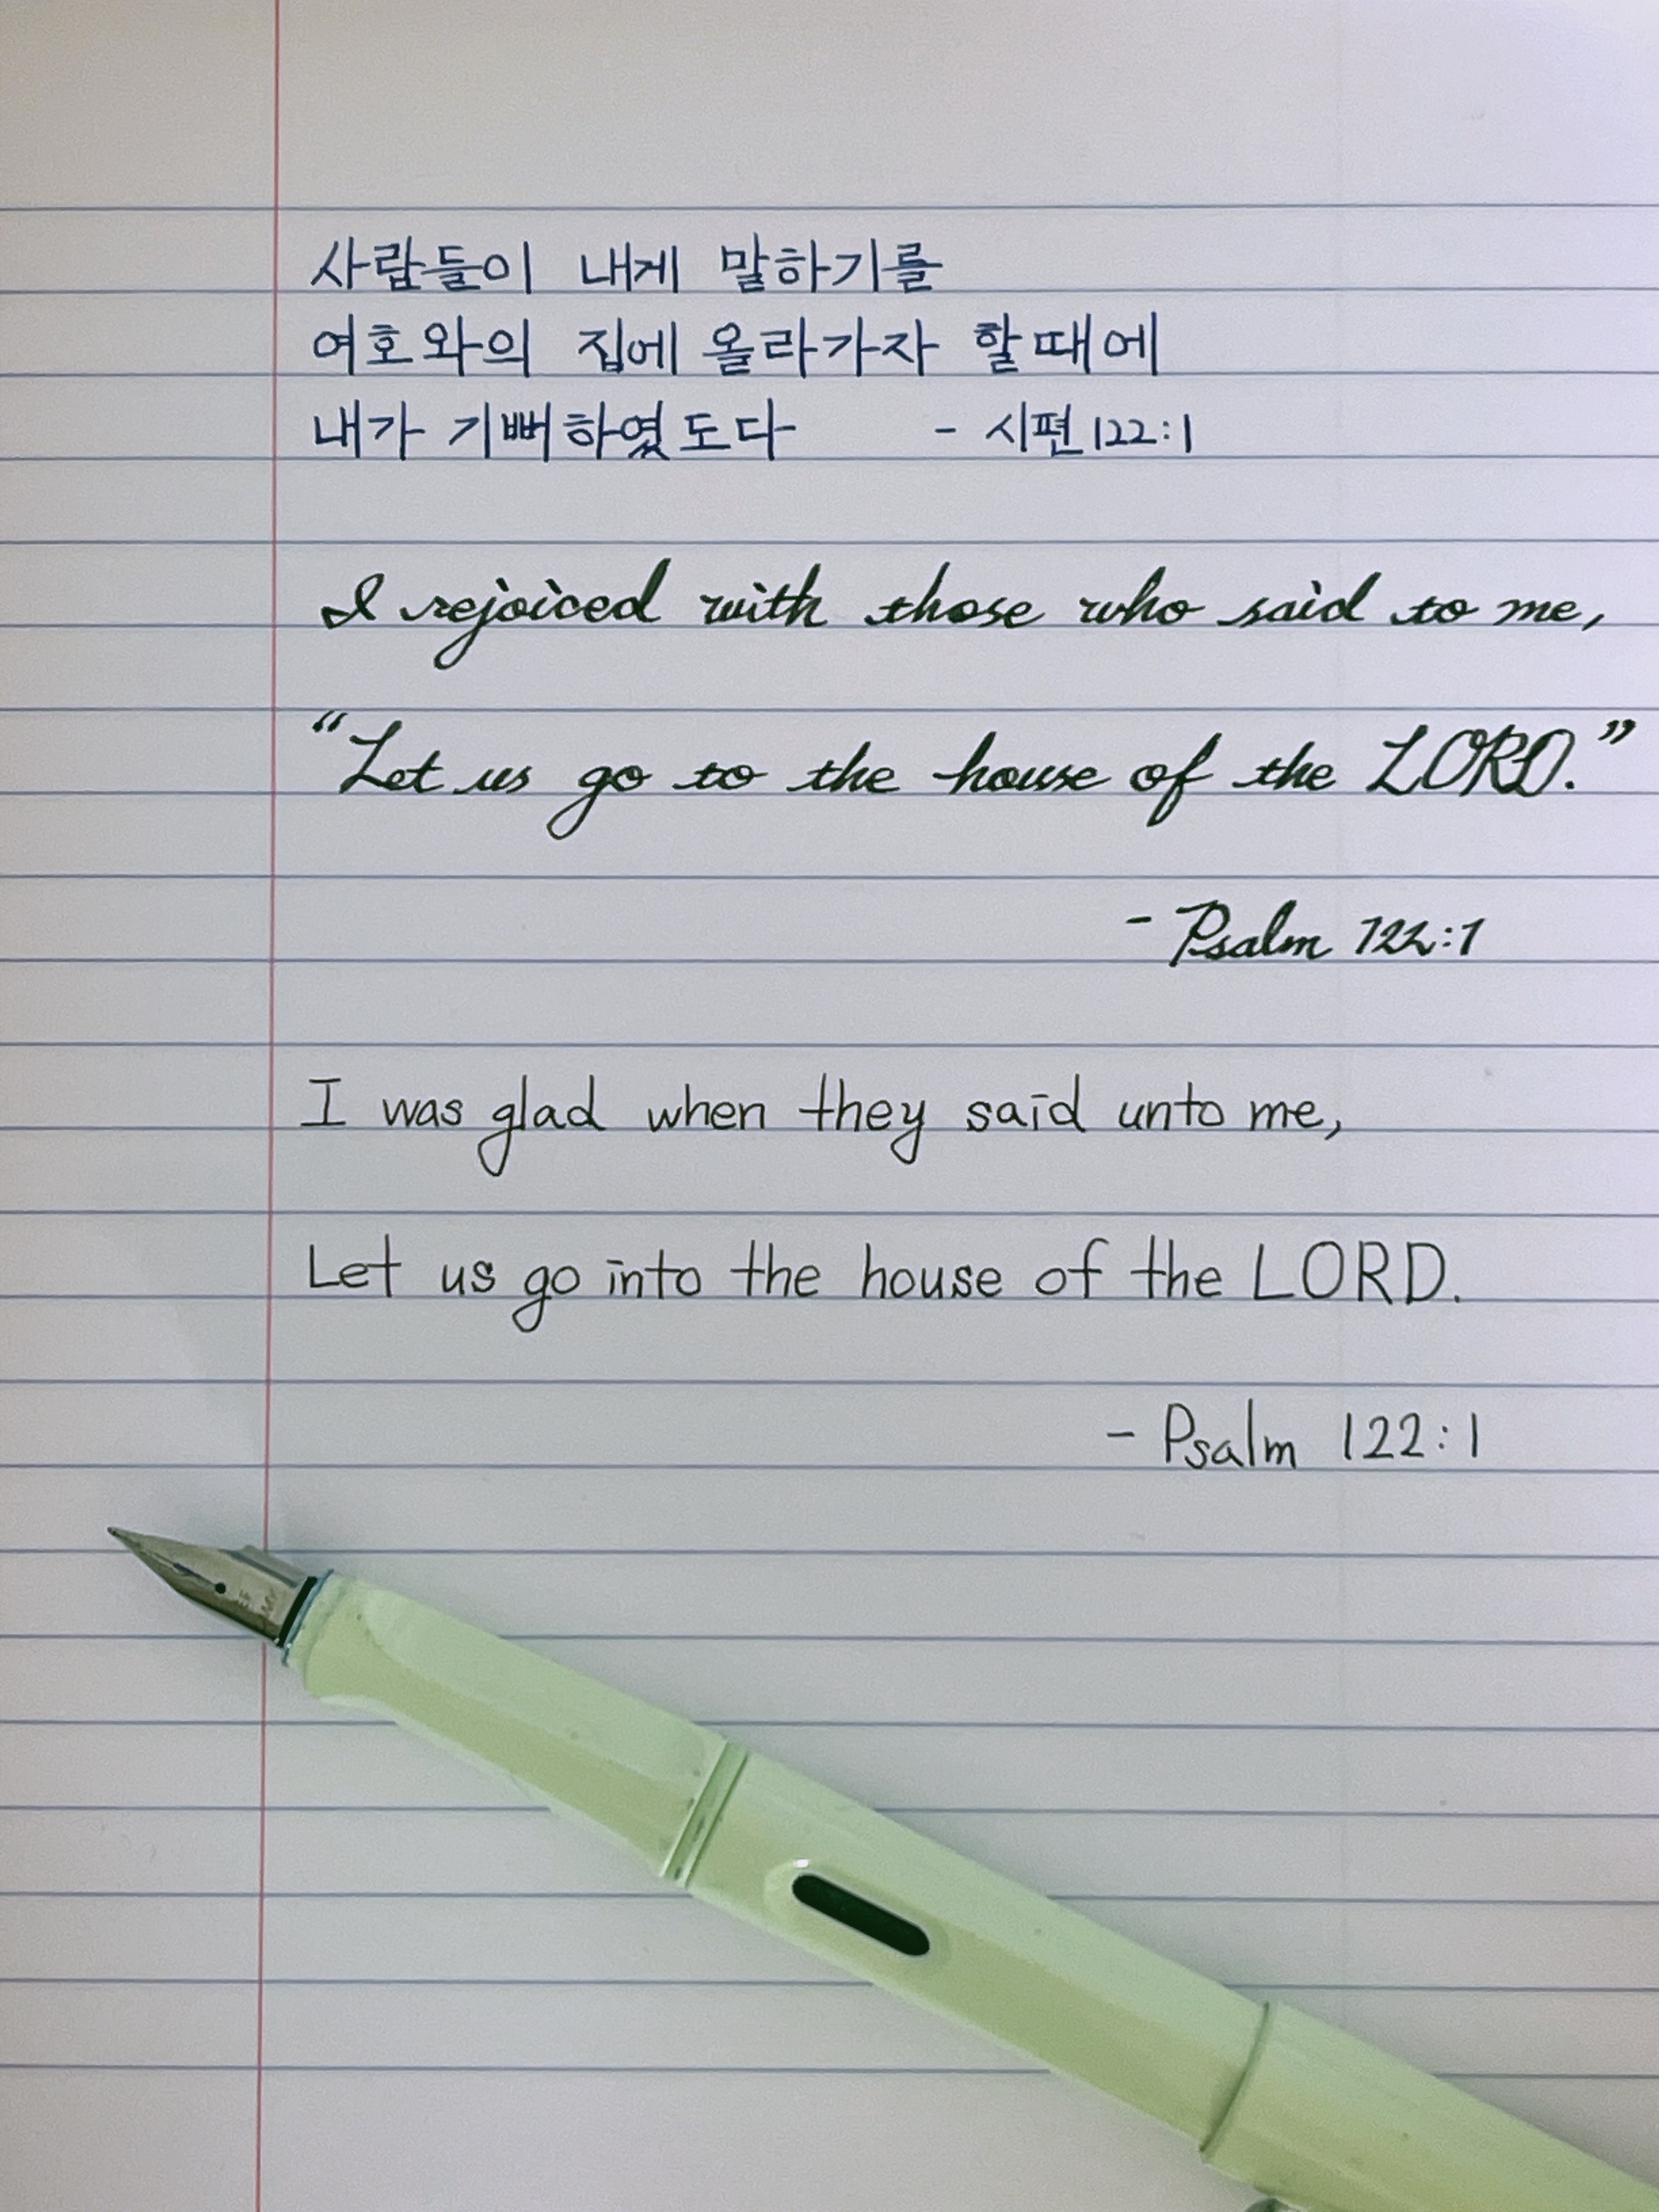 사람들이 내게 말하기를
여호와의 집에 올라가자 할때에
내가 기뻐하였도다 - 시편 122:1
I rejoiced with those who said to me,
“Let us go to the house of the LORD.”
- Psalm 122:1
I was glad when they said unto me,
Let us go into the house of the LORD.
- Psalm 122:1